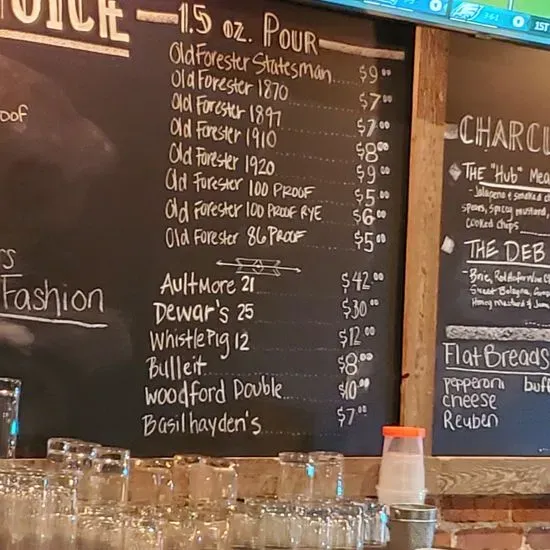 1.5 oz. Pour
Old Forester Statesman $9.00
Old Forester 1870 $7.00
Old Forester 1897 $7.00
Old Forester 1910 $8.00
Old Forester 1920 $9.00
Old Forester 100 PROOF $5.00
Old Forester 100 PROOF RYE $6.00
Old Forester 86 PROOF $5.00
AultMore 21 $42.00
Dewar's 25 $30.00
WhistlePig 12 $12.00
Bulleit $8.00
Woodford Double $10.00
Basil hayden's $7.00
oof
rs
Fashion
1ST
CHARCU
THE "Hub" Mea
Jalapeno & smoked c
spears, spicy mustard
cooked chips
THE DEB
Brie,
Sweet Bologna,
Honey Mustard & Jam
Flat Breads
pepperoni buff
cheese
Reuben